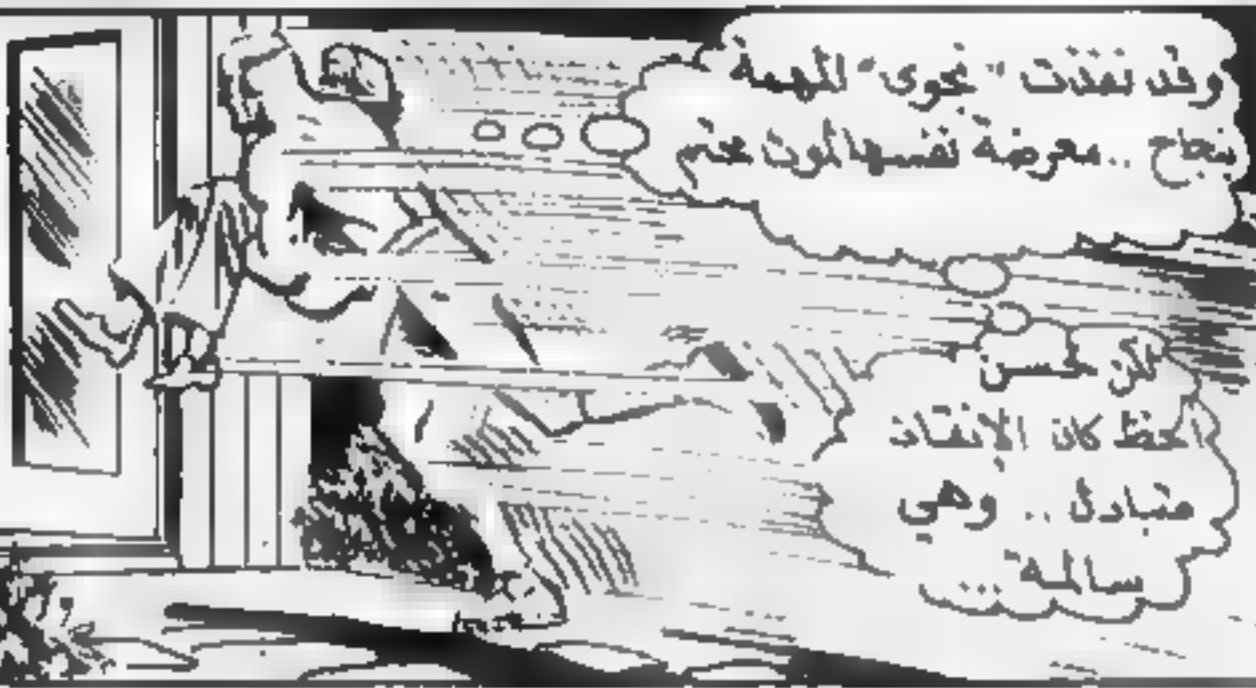 وقد نفذت "نجوى" المهمة
بنجاح .. معرضة نفسها لموت محتم
لكن لحسن
الحظ كان الإنقاذ
متبادل .. وهي
سالمة ...